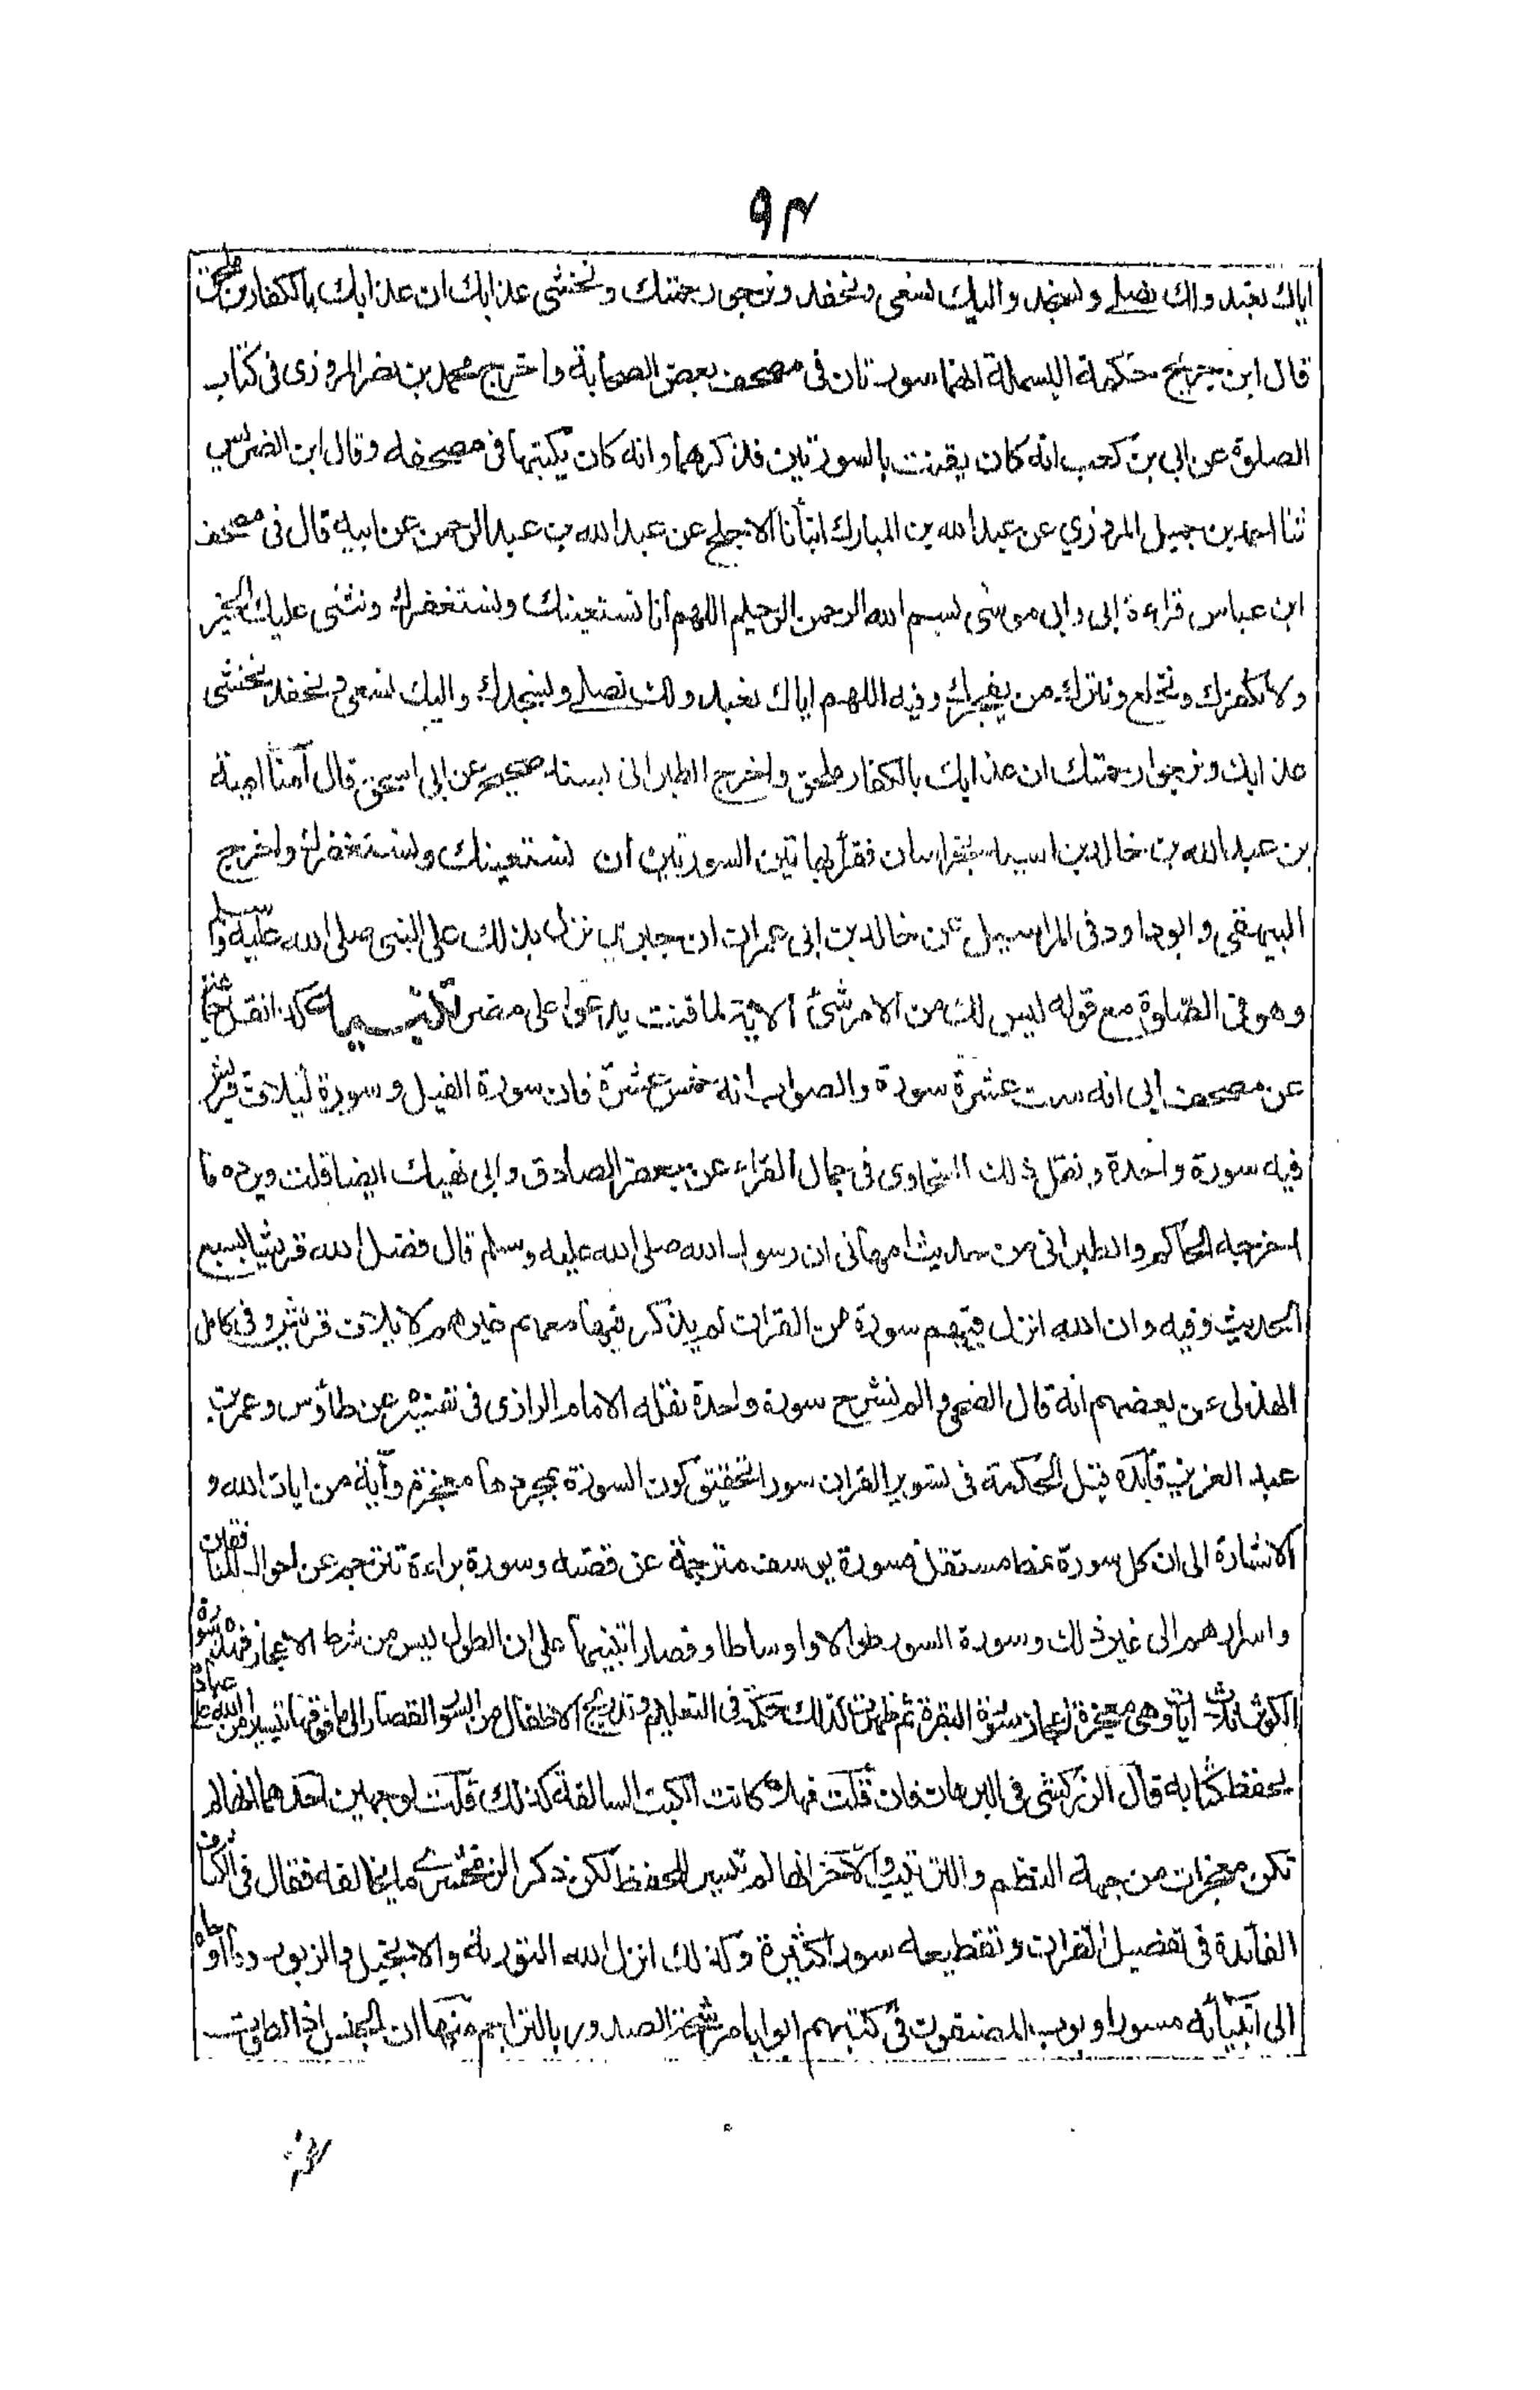 ٩٣
اياك نعبد ولك نصلے ونسجد واليك نسعى ونحفد ونرجو رحمتك ونخشى عذابك ان عذابك بالكفارين ملحق
قال ابن جريج حكمة البسملة انهما سورتان فى مصحف بعض الصحابة واخرج محمد بن نصر المروزى فى كتاب
الصلوة عن ابى بن كعب انه كان يقنت بالسورتين فذكرهما وانه كان يكتبها فى مصحفه وقال ابن الضريس
ثنا احمد بن جميل المروزي عن عبد الله بن المبارك انبأنا الاجلح عن عبد الله بن عبد الرحمن عن ابيه قال فى مصحف
ابن عباس قراءة ابى وابى موسى بسم الله الرحمن الرحيم اللهم انا نستعينك ونستغفرك ونثنى عليك الخير
ولا نكفرك ونخلع ونترك من يفجرك وفيه اللهم اياك نعبد ولك نصلے ونسجد لك واليك نسعى ونحفد نخشى
عذابك ونرجوا رحمتك ان عذابك بالكفار ملحق واخرج الطبرانى بسند صحيح عن ابى اسحق قال آمنا امية
بن عبد الله بن خالد بن اسيد بخراسان فقرأ بهاتين السورتين ان نستعينك ونستغفرك واخرج
البيهقى وابوداود فى المراسيل عن خالد بن ابى عمران ان جبريل نزل بذلك على النبى صلى الله عليه وسلم
وهو فى الصلوة مع قوله ليس لك من الامر شئ الاية لما قنت يدعوا على مضر تنبيه كذا نقل جماعة
عن مصحف ابى انه ست عشرة سورة والصواب انه خمس عشرة فان سورة الفيل وسورة لئيلاف قريش
فيه سورة واحدة ونقل ذلك السخاوى فى جمال القراء عن جعفر الصادق وابى نهيك ايضا قلت ويرده ما
اخرجه الحاكم والطبرانى من حديث ام هانى ان رسول الله صلى الله عليه وسلم قال فضل الله قريشا بسبع
الحديث وفيه وان الله انزل فيهم سورة من القران لم يذكر فيها معهم غيرهم لايلاف قريش وفى كامل
الهذلى عن بعضهم انه قال الضحى والم نشرح سورة واحدة نقله الامام الرازى فى تفسيره عن طاؤس وعمر بن
عبد العزيز فائدة قيل الحكمة فى تسوير القران سورا تحقيق كون السورة بمجردها معجزة وآية من ايات الله و
الاشارة الى ان كل سورة نمط مستقل فسورة يوسف مترجمة عن قصته وسورة براءة تترجم عن احوال المنافقين
واسرارهم الى غير ذلك وسورة السور طوالا واوساطا وقصارا تنبيها على ان الطول ليس من شرط الاعجاز فهذه سورة
الكوثر ثلاث ايات وهى معجزة اعجاز سورة البقرة ثم ظهرت لذلك حكمة فى التعليم وتدريج الاطفال من السور القصار الى ما فوقها تيسيرا من الله على عباده
لحفظ كتابه قال الزركشى فى البرهان فان قلت فهلا كانت الكتب السالفة كذلك قلت لوجهين احدهما انها لم
تكن معجزات من جهة النظم والترتيب والاخر انها لم تيسر للحفظ لكن ذكر الزمخشرے ما يخالفه فقال فى الكشاف
الفائدة فى تفصيل القران وتقطيعه سورا كثيرة وكذلك انزل الله التورية والانجيل والزبور وما اوحاه
الى انبيائه مسورا وبوب المصنفون فى كتبهم ابوابا موشحة الصدور بالتراجم منها ان الجنس اذا انطوت